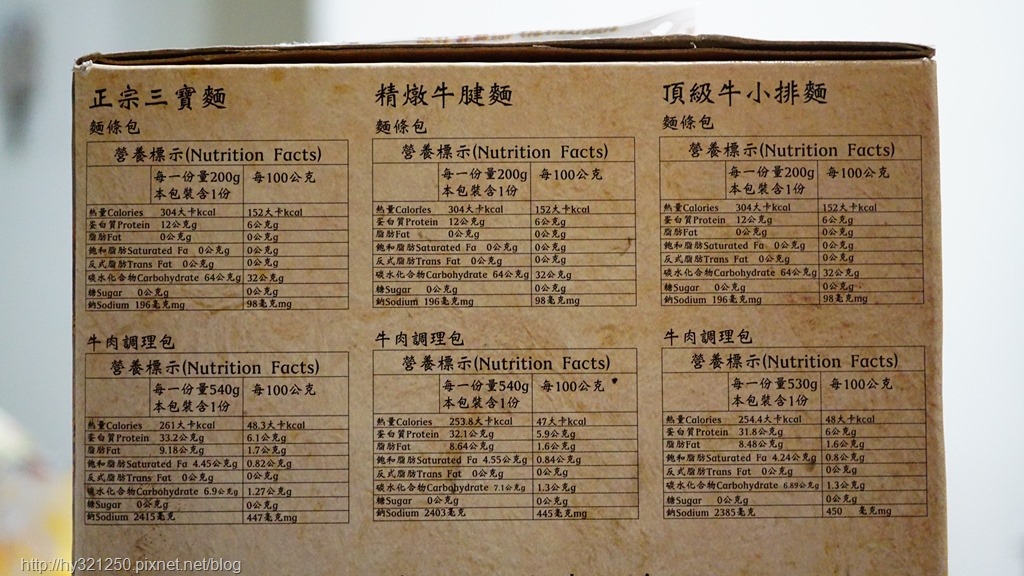 正宗三寶麵
麵條包
營養標示(Nutrition Facts)
每一份量200g 每100公克
本包裝含1份
熱量Calories 304大卡kcal 152大卡kcal
蛋白質Protein 12公克g 6公克g
脂肪Fat 0公克g 0公克g
飽和脂肪Saturated Fa 0公克g 0公克g
反式脂肪Trans Fat 0公克g 0公克g
碳水化合物Carbohydrate 64公克g 32公克g
糖Sugar 0公克g 0公克g
鈉Sodium 196毫克mg 98毫克mg
牛肉調理包
營養標示(Nutrition Facts)
每一份量540g 每100公克
本包裝含1份
熱量Calories 261大卡kcal 48.3大卡kcal
蛋白質Protein 33.2公克g 6.1公克g
脂肪Fat 9.18公克g 1.7公克g
飽和脂肪Saturated Fa 4.45公克g 0.82公克g
反式脂肪Trans Fat 0公克g 0公克g
碳水化合物Carbohydrate 6.9公克g 1.27公克g
糖Sugar 0公克g 0公克g
鈉Sodium 2415毫克 447毫克mg
精燉牛腱麵
麵條包
營養標示(Nutrition Facts)
每一份量200g 每100公克
本包裝含1份
熱量Calories 304大卡kcal 152大卡kcal
蛋白質Protein 12公克g 6公克g
脂肪Fat 0公克g 0公克g
飽和脂肪Saturated Fa 0公克g 0公克g
反式脂肪Trans Fat 0公克g 0公克g
碳水化合物Carbohydrate 64公克g 32公克g
糖Sugar 0公克g 0公克g
鈉Sodium 196毫克mg 98毫克mg
牛肉調理包
營養標示(Nutrition Facts)
每一份量540g 每100公克
本包裝含1份
熱量Calories 253.8大卡kcal 47大卡kcal
蛋白質Protein 32.1公克g 5.9公克g
脂肪Fat 8.64公克g 1.6公克g
飽和脂肪Saturated Fa 4.55公克g 0.84公克g
反式脂肪Trans Fat 0公克g 0公克g
碳水化合物Carbohydrate 7.1公克g 1.3公克g
糖Sugar 0公克g 0公克g
鈉Sodium 2403毫克 445毫克mg
頂級牛小排麵
麵條包
營養標示(Nutrition Facts)
每一份量200g 每100公克
本包裝含1份
熱量Calories 304大卡kcal 152大卡kcal
蛋白質Protein 12公克g 6公克g
脂肪Fat 0公克g 0公克g
飽和脂肪Saturated Fa 0公克g 0公克g
反式脂肪Trans Fat 0公克g 0公克g
碳水化合物Carbohydrate 64公克g 32公克g
糖Sugar 0公克g 0公克g
鈉Sodium 196毫克mg 98毫克mg
牛肉調理包
營養標示(Nutrition Facts)
每一份量530g 每100公克
本包裝含1份
熱量Calories 254.4大卡kcal 48大卡kcal
蛋白質Protein 31.8公克g 6公克g
脂肪Fat 8.48公克g 1.6公克g
飽和脂肪Saturated Fa 4.24公克g 0.8公克g
反式脂肪Trans Fat 0公克g 0公克g
碳水化合物Carbohydrate 6.89公克g 1.3公克g
糖Sugar 0公克g 0公克g
鈉Sodium 2385毫克 450 毫克mg
http://hy321250.pixnet.net/blog